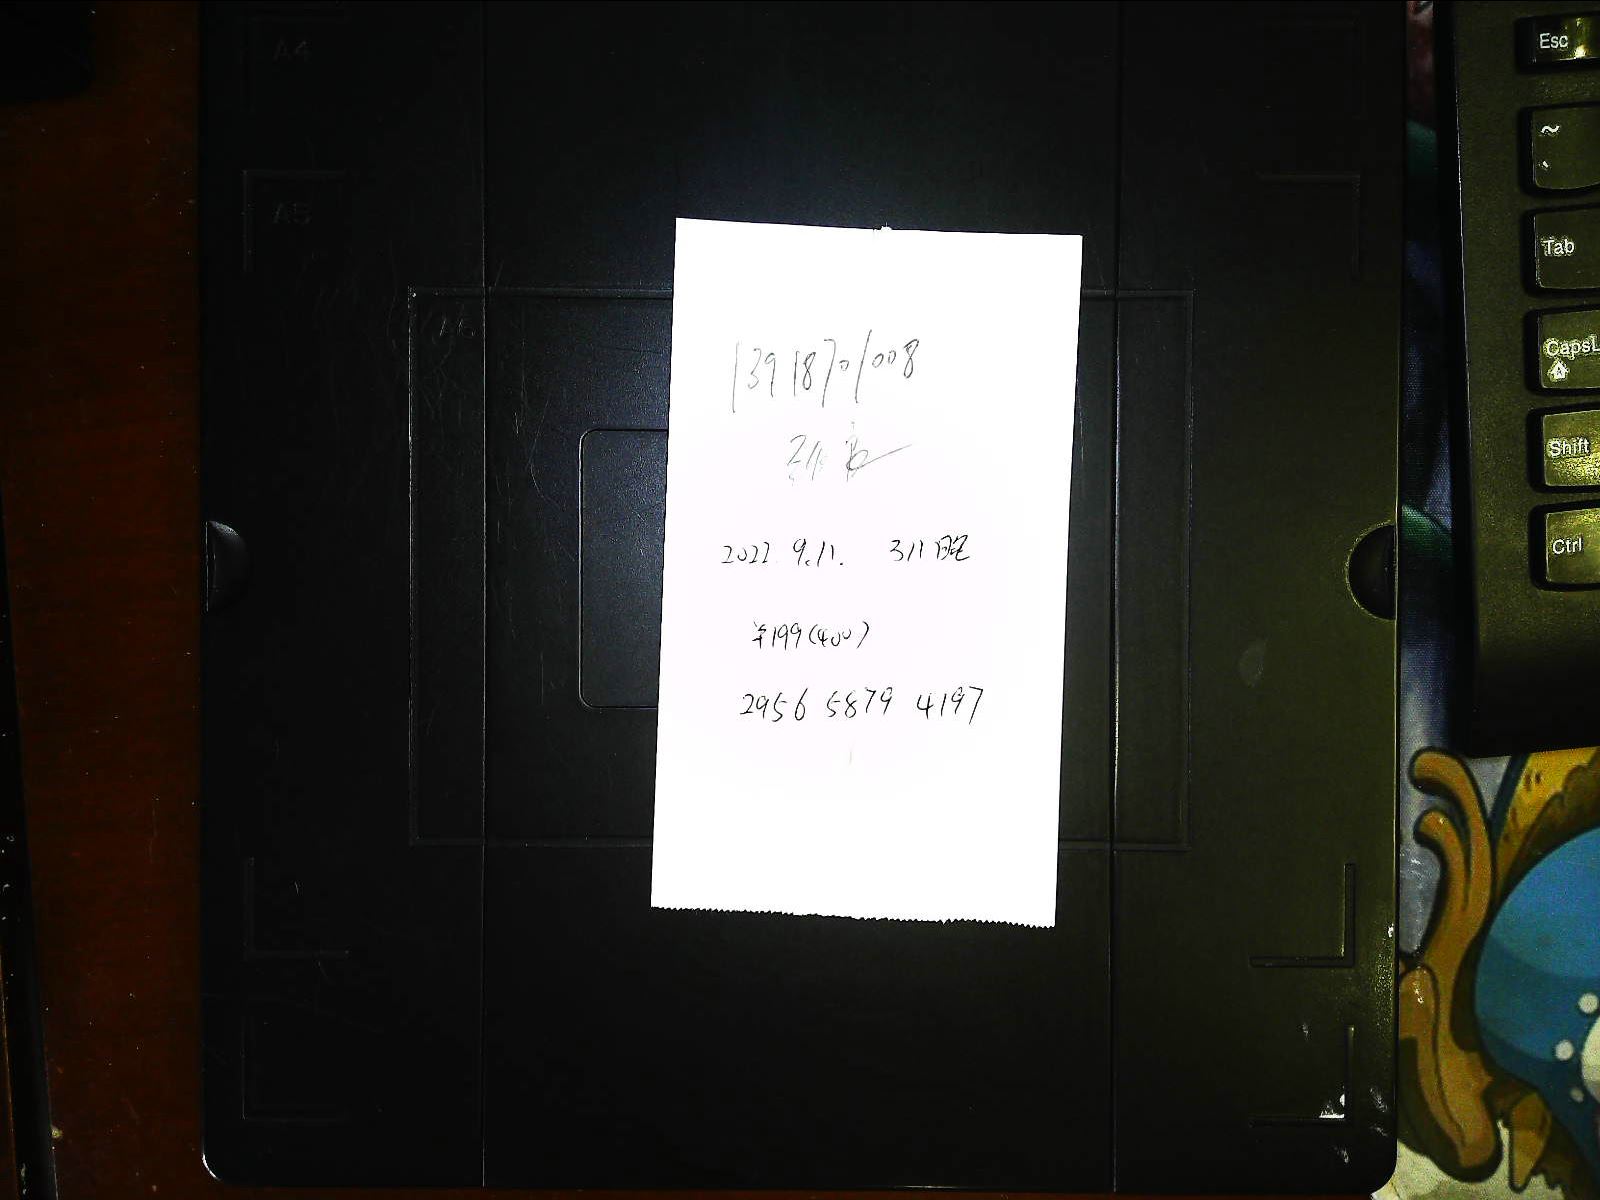 A4
A5
A6
13918701008
2022.9.11. 311
¥199(400)
2956 5879 4197
Esc
~
Tab
CapsL
Shift
Ctrl